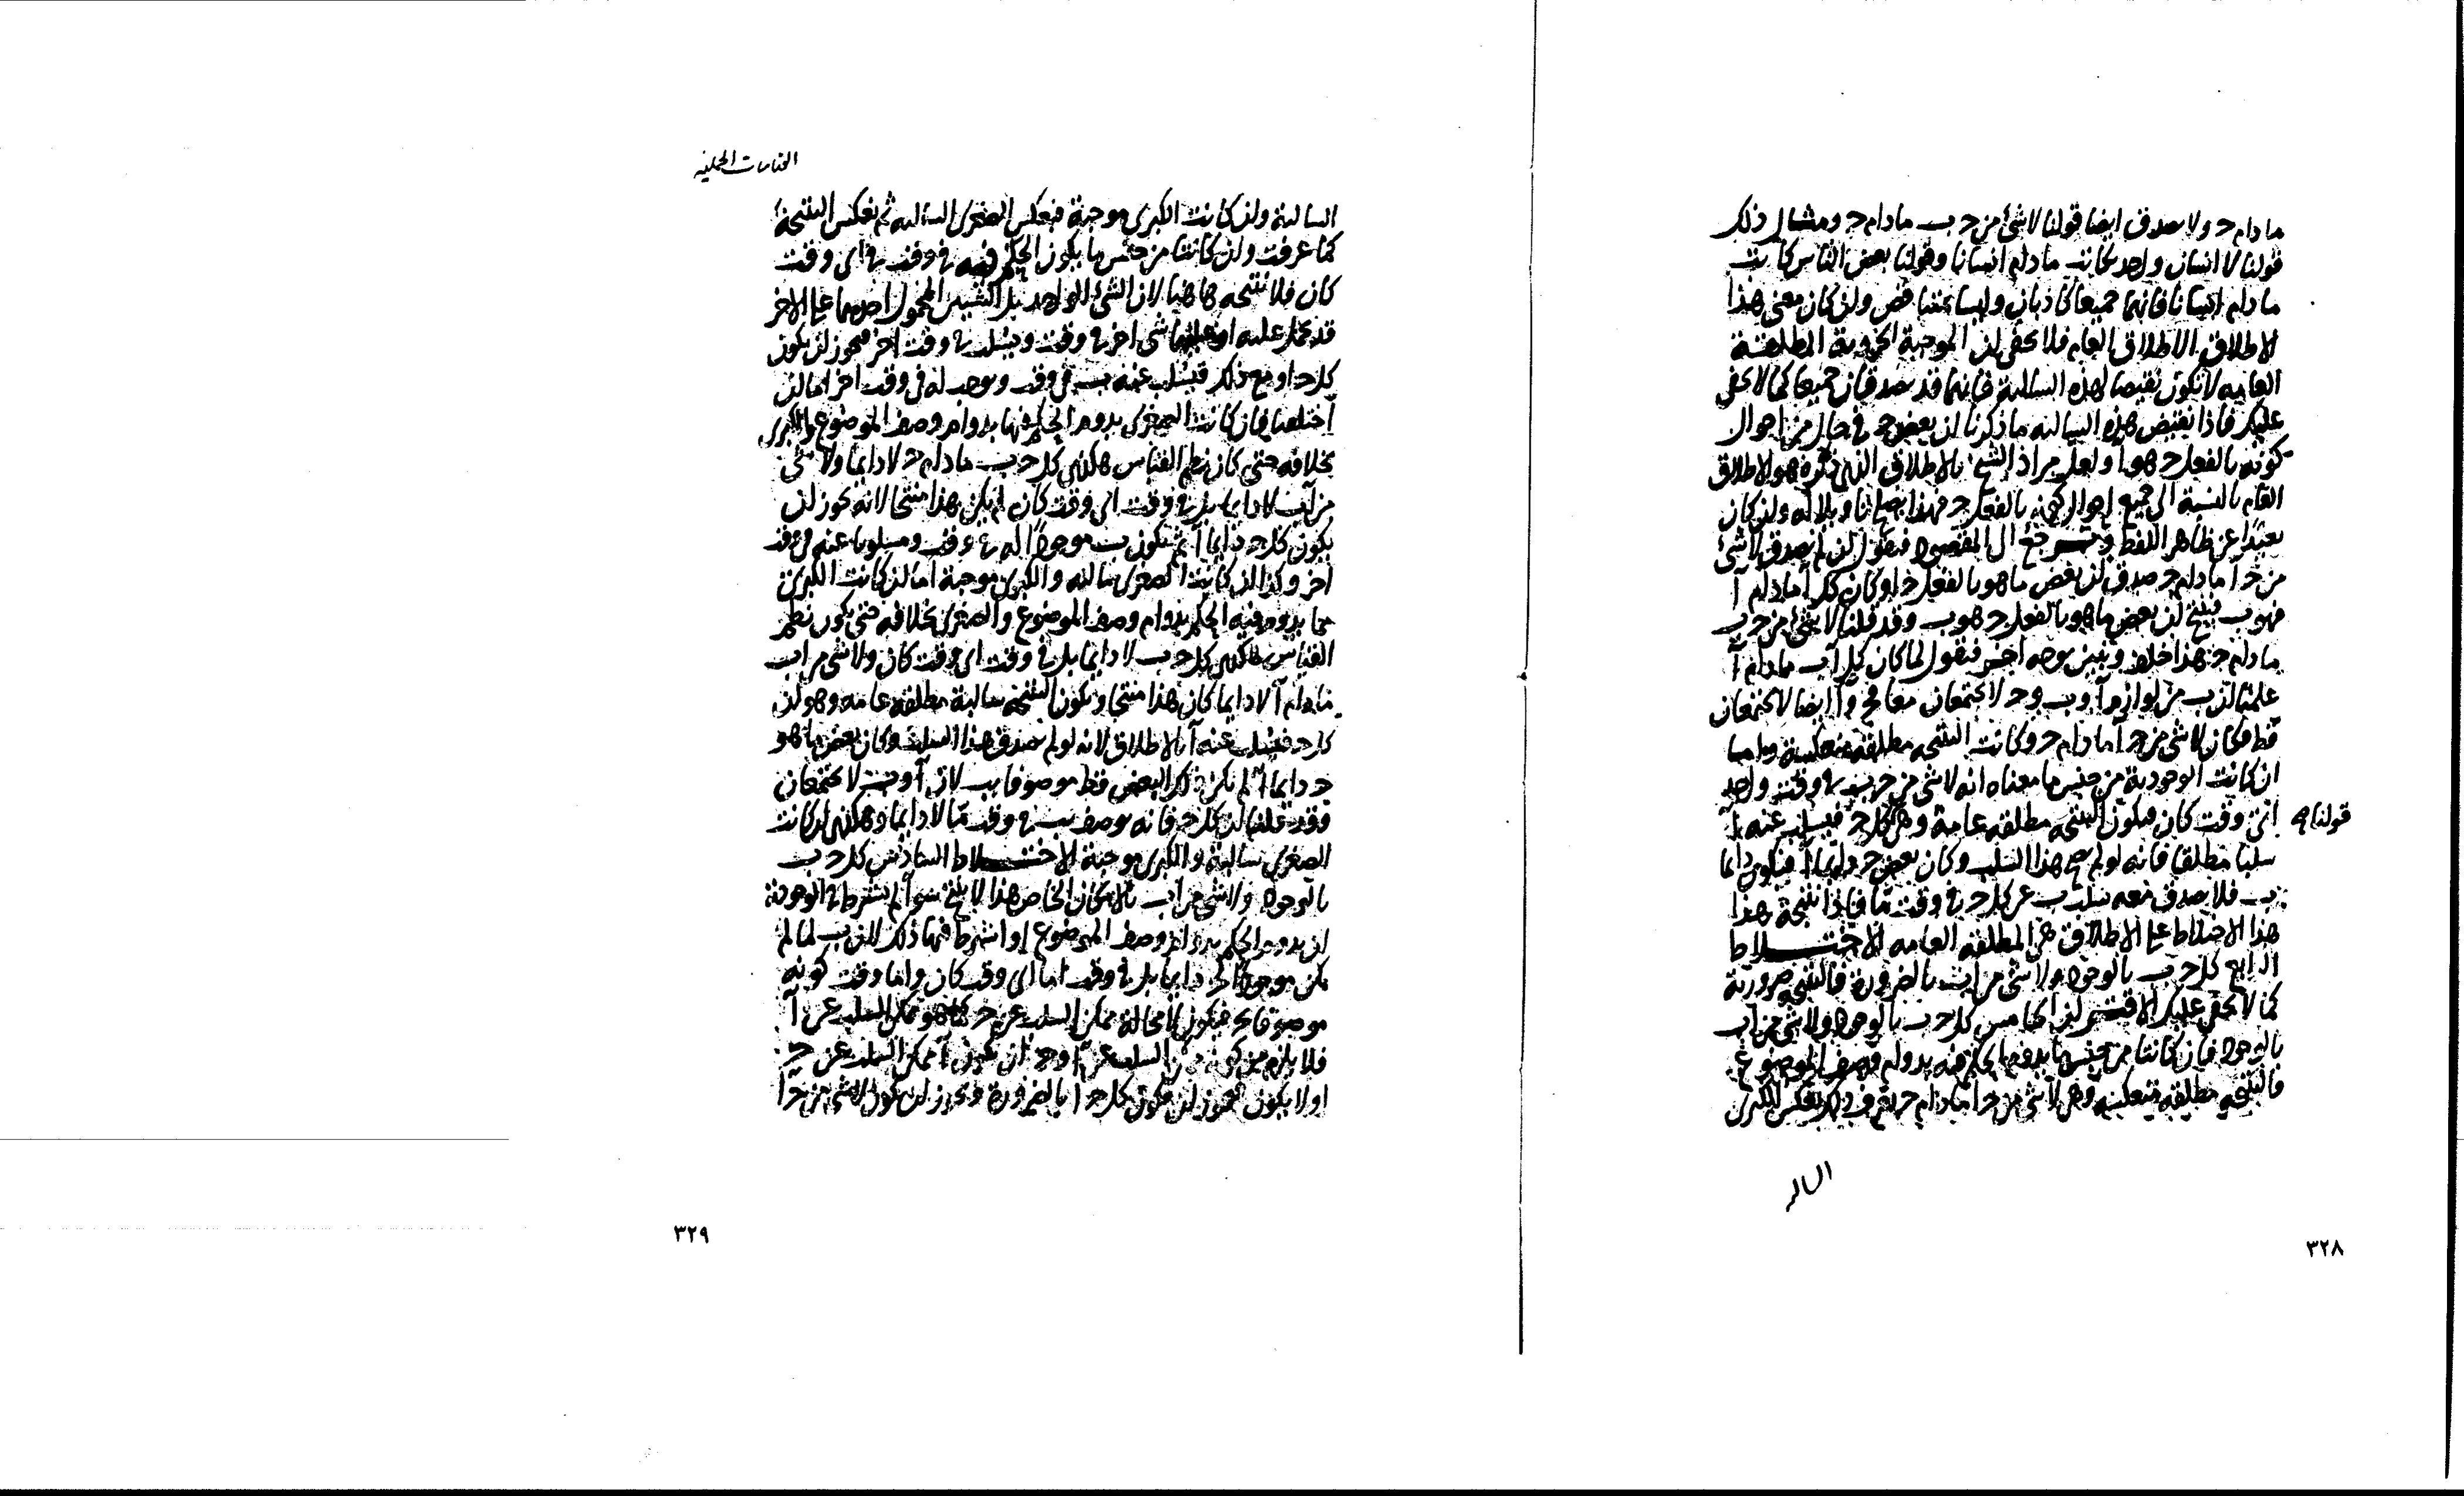 ما دام ج ولا يصدق ايضا قولنا لا شئ من ج ب ما دام ج ومثال ذلك
قولنا لا انسان واحد بكاتب ما دام انسانا وقولنا بعض الناس كاتب
ما دام انسانا فانهما جميعا كاذبان وليسا بمتناقضين ولن كان معنى هذا
الاطلاق الاطلاق العام فلا يخفى لن الموجبة الجزوية المطلقة
العامه لا تكون نقيضا لهذه السالبة فانهما قد يصدقان جميعا كما لا يخفى
عليك فاذا نقيض هذه السالبه ما ذكرنا لن بعض ج في حال من احوال
كونه بالفعل ج هو آ ولعل مراد الشيخ بالاطلاق الذى ذكره هو الاطلاق
العام بالنسبة الى جميع احوال كونه بالفعل ج فهذا يصلح تاويلا له ولن كان
بعيدا عن ظاهر اللفظ ونرجع الى المقصود فنقول لن لم يصدق لا شئ
من ج آ ما دام ج صدق لن بعض ما هو بالفعل ج او كان كل آ ما دام آ
فهو ب فينتج لن بعض ما هو بالفعل ج هو ب وقد قلنا لا شئ من ج ب
ما دام ج هذا خلف ونبين بوجه اخر فنقول لما كان كل آ ب ما دام آ
علمنا لن ب من لوازم آ و ب و ج لا يجتمعان معا فج و آ ايضا لا يجتمعان
قط فكان لا شئ من ج آ ما دام ج وكانت النتيجه مطلقة منعكسة واما
ان كانت الوجودية من جنس ما معناه انه لا شئ من ج ب في وقت واحد
اى وقت كان فيكون النتيجه مطلقه عامة وهى كل ج فيسلب عنه آ
قولنا
سلبا مطلقا فانه لو لم يصح هذا السلب وكان بعض ج دايما آ فيكون دايما
ب فلا يصدق معه سلب ب عن كل ج في وقت ما فاذا نتيجة هذا
هذا الاختلاط على الاطلاق هى المطلقه العامه الاختلاط
الرابع كل ج ب بالوجود ولا شئ من آ ب بالضرورة فالنتيجه ضرورية
كما لا يخفى عليك الاقتران الخامس كل ج ب بالوجود ولا شئ من آ ب
بالوجود فان كانتا من جنس ما يدوم الحكم فيه بدوام وصف الموضوع
فالنتيجه مطلقه منعكسه وهى لا شئ من ج آ ما دام ج يعرف ذلك بعكس الكبرى
السالبه
٣٢٨
القياسات الحملية
السالبة ولن كانت الكبرى موجبة فبعكس الصغرى السالبه ثم بعكس النتيجة
كما عرفت ولن كانتا من جنس ما يكون الحكم فيه في وقت اى وقت
كان فلا نتيجه هاهنا لان الشئ الواحد بل الشيئين المحمول احدهما على الاخر
قد يحمل عليه او عليهما شئ اخر في وقت ويسلب في وقت اخر فيجوز لن يكون
كل ج آ ومع ذلك فيسلب عنه ب في وقت ويوجد له في وقت اخر اما لن
اختلفتا فان كانت الصغرى يدوم الحكم فيها بدوام وصف الموضوع والكبرى
بخلافه حتى كان نظم القياس هكذى كل ج ب ما دام ج لا دايما ولا شئ
من آ ب لا دايما بل في وقت اى وقت كان لم يكن هذا منتجا لانه يجوز لن
يكون كل ج دايما آ ثم يكون ب موجودا له في وقت ومسلوبا عنه في وقت
اخر وكذا لن كانت الصغرى سالبه والكبرى موجبة اما لن كانت الكبرى
مما يدوم فيه الحكم بدوام وصف الموضوع والصغرى بخلافه حتى يكون نظم
القياس هكذى كل ج ب لا دايما بل في وقت اى وقت كان ولا شئ من آ ب
ما دام آ لا دايما كان هذا منتجا ويكون النتيجه سالبة مطلقه عامه وهو لن
كل ج فيسلب عنه آ بالاطلاق لانه لو لم يصدق هذا السلب وكان بعض ما هو
ج دايما آ لم يكن ذلك البعض قط موصوفا بب لان آ و ب لا يجتمعان
وقد قلنا لن كل ج فانه يوصف بب في وقت ما لا دايما وهكذى لن كانت
الصغرى سالبة والكبرى موجبة الاختلاط السادس كل ج ب
بالوجود ولا شئ من آ ب بالامكان الخاص هذا لا ينتج سوآ لم يشترط في الوجودية
لن يدوم الحكم بدوام وصف الموضوع او اشترط فيها ذلك لان ب لما لم
يكن موجودا لج دايما بل في وقت اما اى وقت كان واما وقت كونه
موصوفا بج فيكون لا محالة ممكن السلب عن ج كما هو ممكن السلب عن آ
فلا يلزم من كونه ممكن السلب عن آ وج ان يكون آ ممكن السلب عن ج
او لا يكون فيجوز لن يكون كل ج آ بالضرورة ويجوز لن يكون لا شئ من ج آ
٣٢٩